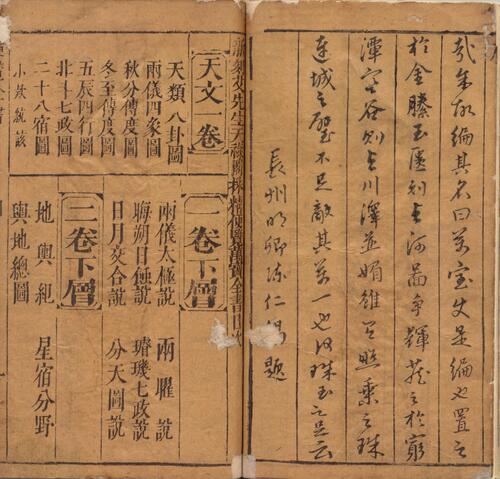 哉余故編其名曰萬宝夫是編也置之
於金滕玉匱則與河啚爭輝蔵之於窮
潭空谷則與川澤並媚雖照乘之珠
連城之璧不足敵其萬一也何珠玉之足云
長州明卿陳仁錫題
新刻艾先生天祿閣採精便覽萬寶全書目
天文一卷
天類八卦圖
兩儀四象圖
秋分傅度圖
冬至傅度圖
五辰四行圖
北斗七政圖
二十八宿圖
小炊統該
一卷下層
兩儀太極說 兩曜說
晦朔日蝕說 璿璣七政說
日月交合說 分天圖說
二卷下層
地輿紀 星宿分野
輿地總圖